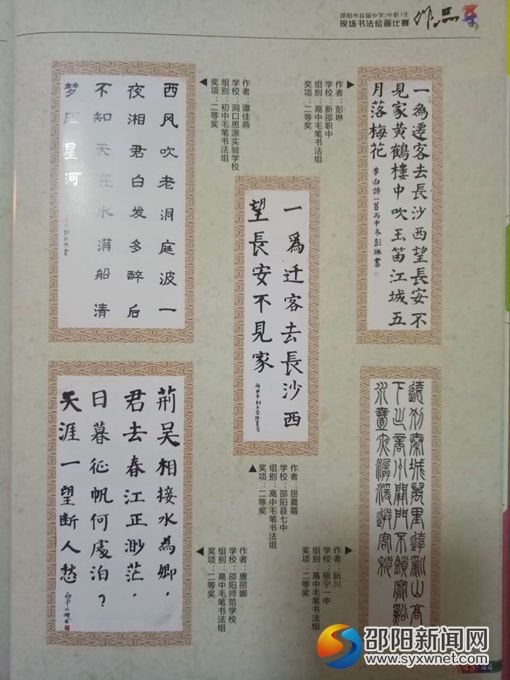 邵阳市首届中学(中职)生
现场书法绘画比赛
作品集
一為遷客去長沙西望長安不
見家黄鶴樓中吹玉笛江城五
月落梅花
李白詩一首丙申冬彭琳書
作者：彭琳
学校：新邵职中
组别：高中毛笔书法组
奖项：二等奖
作者：谭佳燕
学校：洞口思源实验学校
组别：初中毛笔书法组
奖项：二等奖
西风吹老洞庭波一
夜湘君白发多醉后
不知天在水满船清
梦压星河
一爲迁客去長沙西
望長安不見家
作者：屈晨霜
学校：邵阳县七中
组别：高中毛笔书法组
奖项：二等奖
遠别秦城萬里遊亂山高
下出商州關門不鎖寒谿
水一夜潺湲送客愁
作者：阮川
学校：绥宁一中
组别：高中毛笔书法组
奖项：二等奖
作者：唐丽娜
学校：邵阳师范学校
组别：高中毛笔书法组
奖项：二等奖
荆吴相接水為鄉，
君去春江正渺茫，
日暮征帆何處泊？
天涯一望断人愁
43 44
邵阳新闻网
www.syxwnet.com